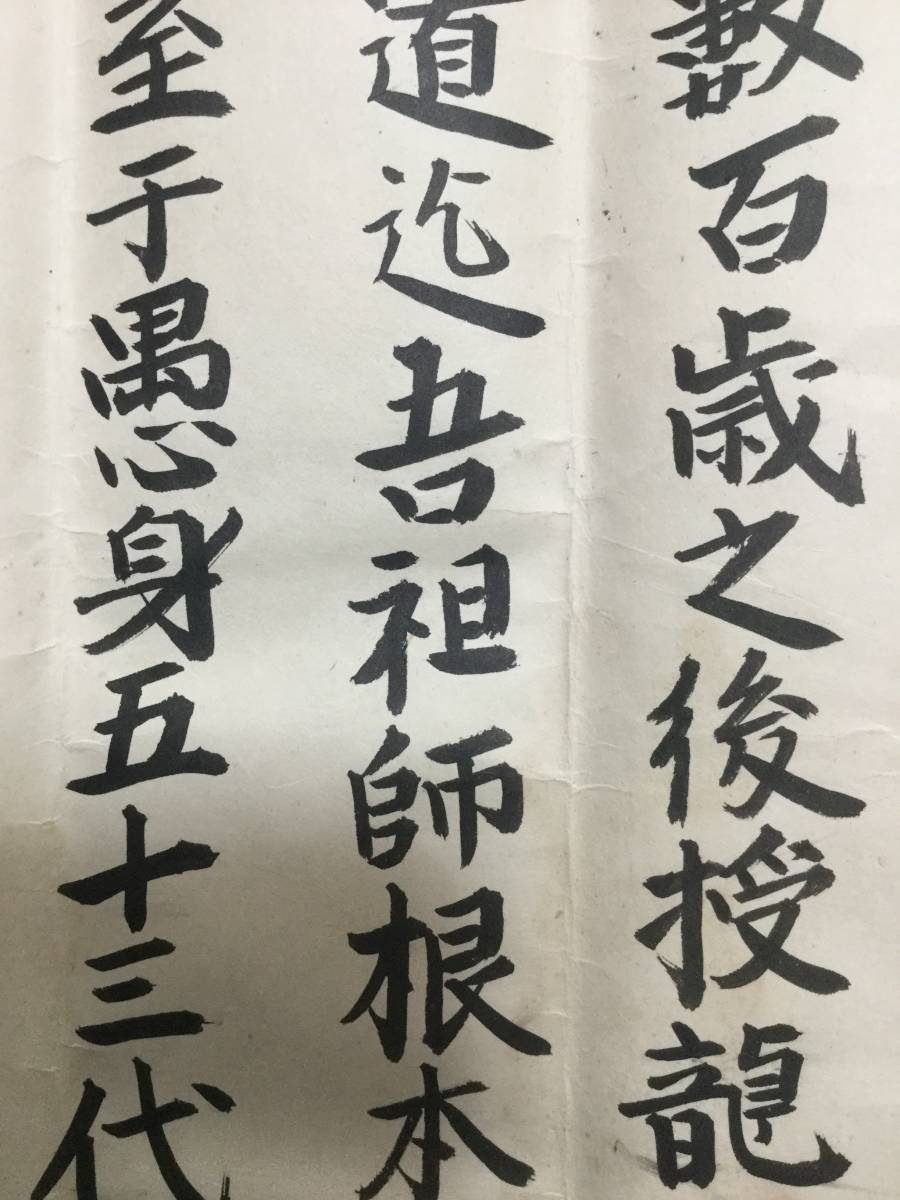 數百歲之後授龍
道迄吾祖師根本
至于愚身五十三代